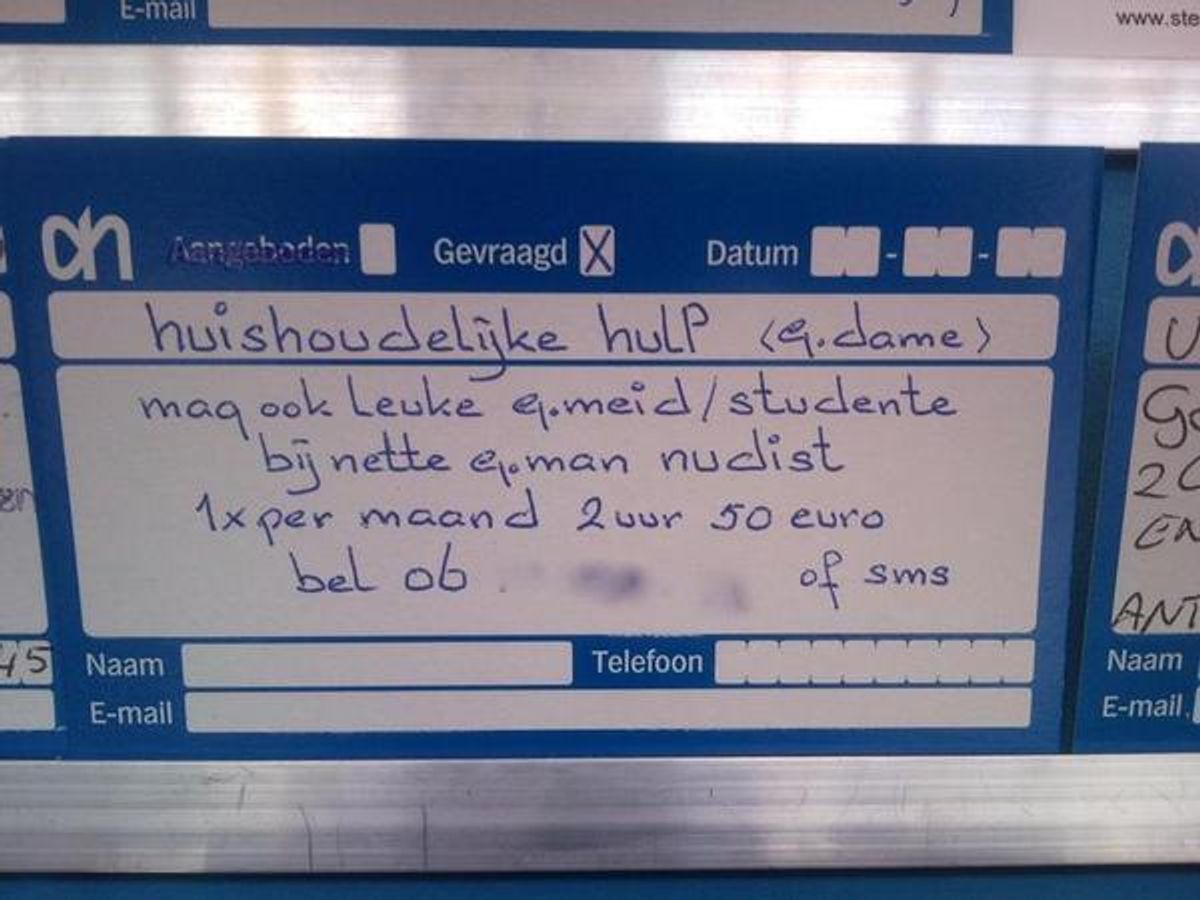 E-mail
www.ste
ah Aangeboden Gevraagd X Datum - -
huishoudelijke hulp (g.dame)
mag ook leuke g.meid/studente
bij nette g.man nudist
1x per maand 2 uur 50 euro
bel 06 of sms
Naam Telefoon
E-mail
45
U
Go
20
EN
ANT
Naam
E-mail